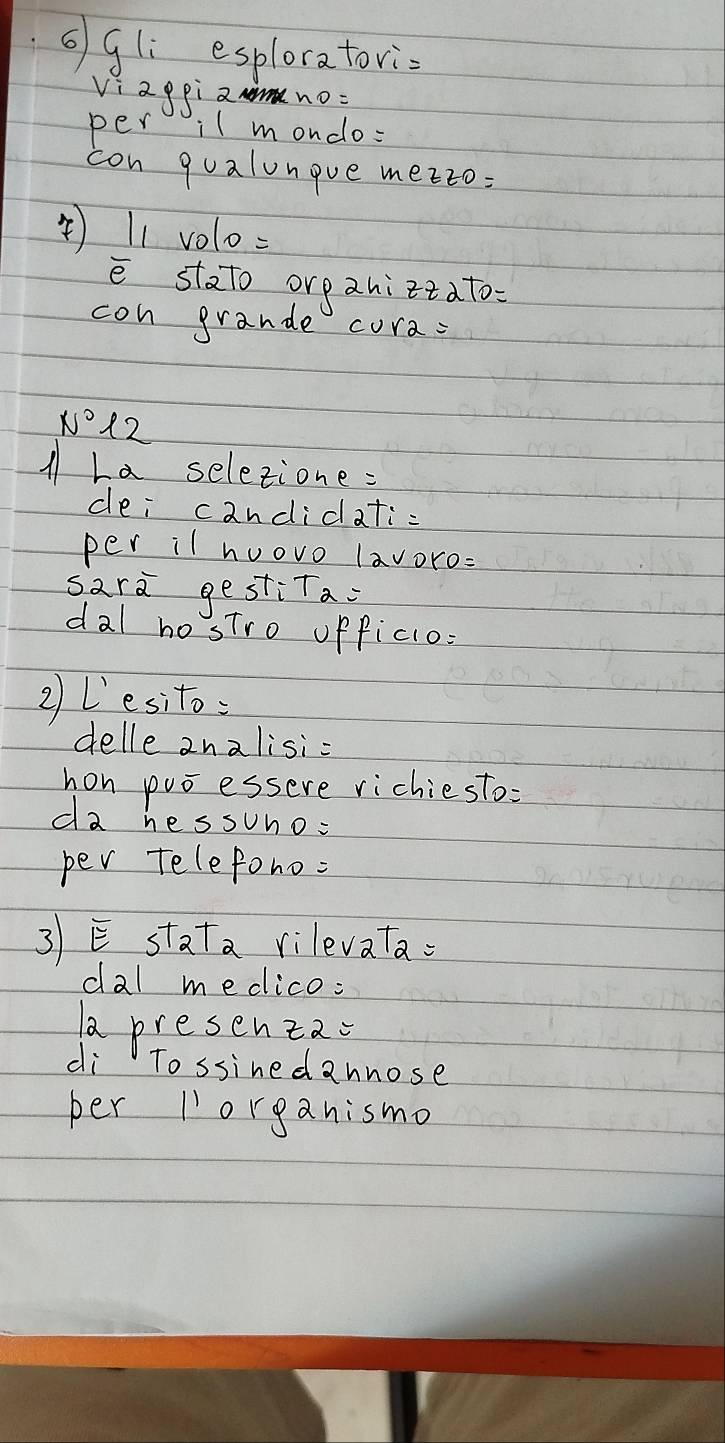 6) Gli esploratori=
viaggiano=
per il mondo=
con qualunque mezzo=
7) Il volo=
ē stato organizzato=
con grande cura=
N°12
1) La selezione=
dei candidati=
per il nuovo lavoro=
sarā gestita=
dal nostro ufficio=
2) L'esito=
delle analisi=
non puō essere richiesto=
da nessuno=
per telefono=
3) Ē stata rilevata=
dal medico=
la presenza=
di tossine dannose
per l'organismo